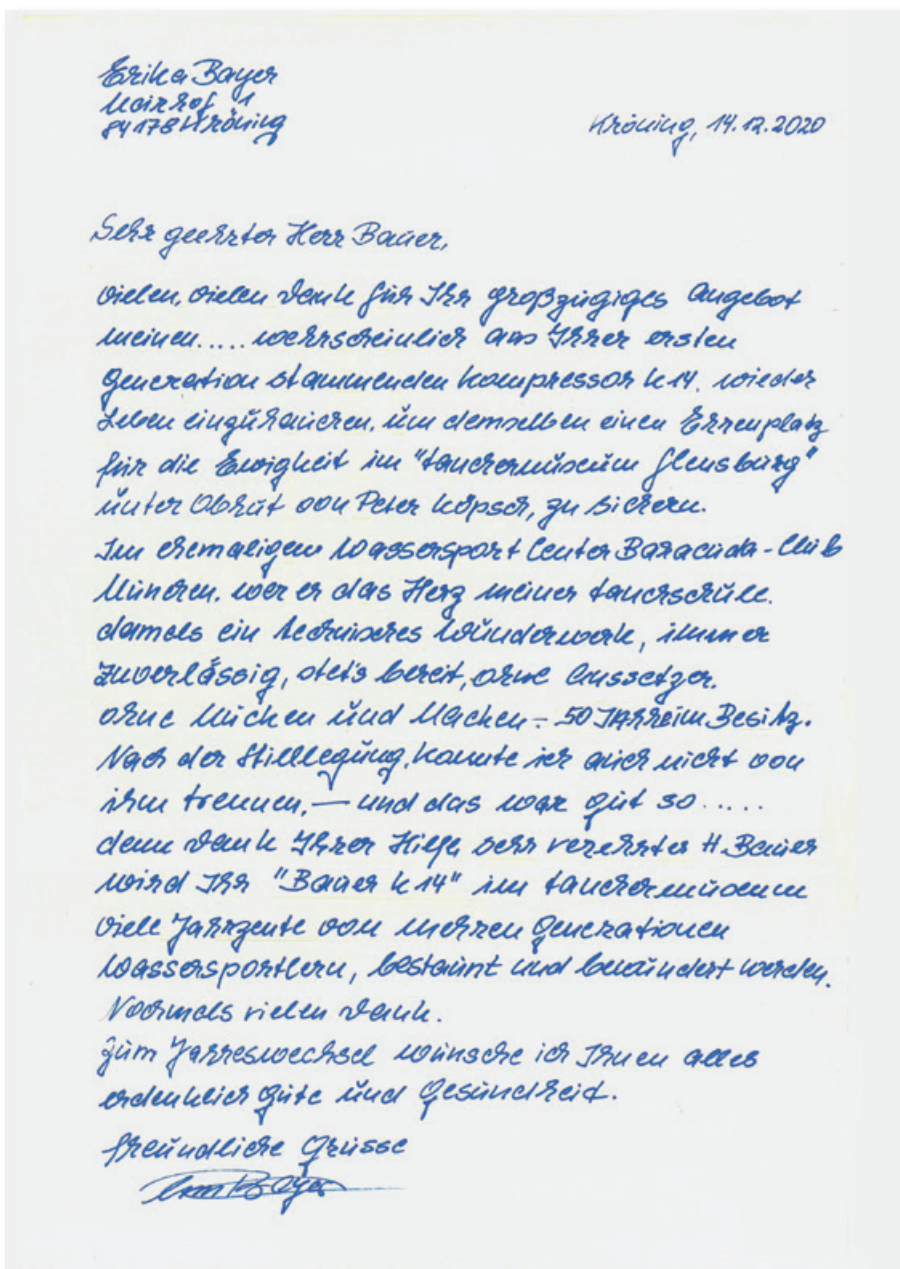 Erika Bayer
Mairhof 1
84178 Kröning
Kröning, 14.12.2020
Sehr geehrter Herr Bauer,
vielen, vielen Dank für Ihr großzügiges Angebot
meinen..... wahrscheinlich aus Ihrer ersten
Generation stammenden Kompressor K14. wieder
Leben einzuhauchen. um demselben einen Ehrenplatz
für die Ewigkeit im "Tauchermuseum Flensburg"
unter Obhut von Peter Köpsch, zu sichern.
Im ehemaligen Wassersport Center Baracuda-Club
München. war er das Herz meiner Tauchschule.
damals ein technisches Wunderwerk, immer
zuverlässig, stets bereit, ohne Aussetzer.
ohne Mucken und Macken – 50 Jahre im Besitz.
Nach der Stilllegung, konnte ich auch nicht von
ihm trennen, — und das war gut so.....
denn Dank Ihrer Hilfe sehr verehrter H. Bauer
wird Ihr "Bauer K14" im Tauchermuseum
viele Jahrzente von mehren Generationen
Wassersportlern, bestaunt und bewundert werden.
Nochmals vielen Dank.
Zum Jahreswechsel wünsche ich Ihnen alles
erdenklich Gute und Gesundheid.
Freundliche Grüsse